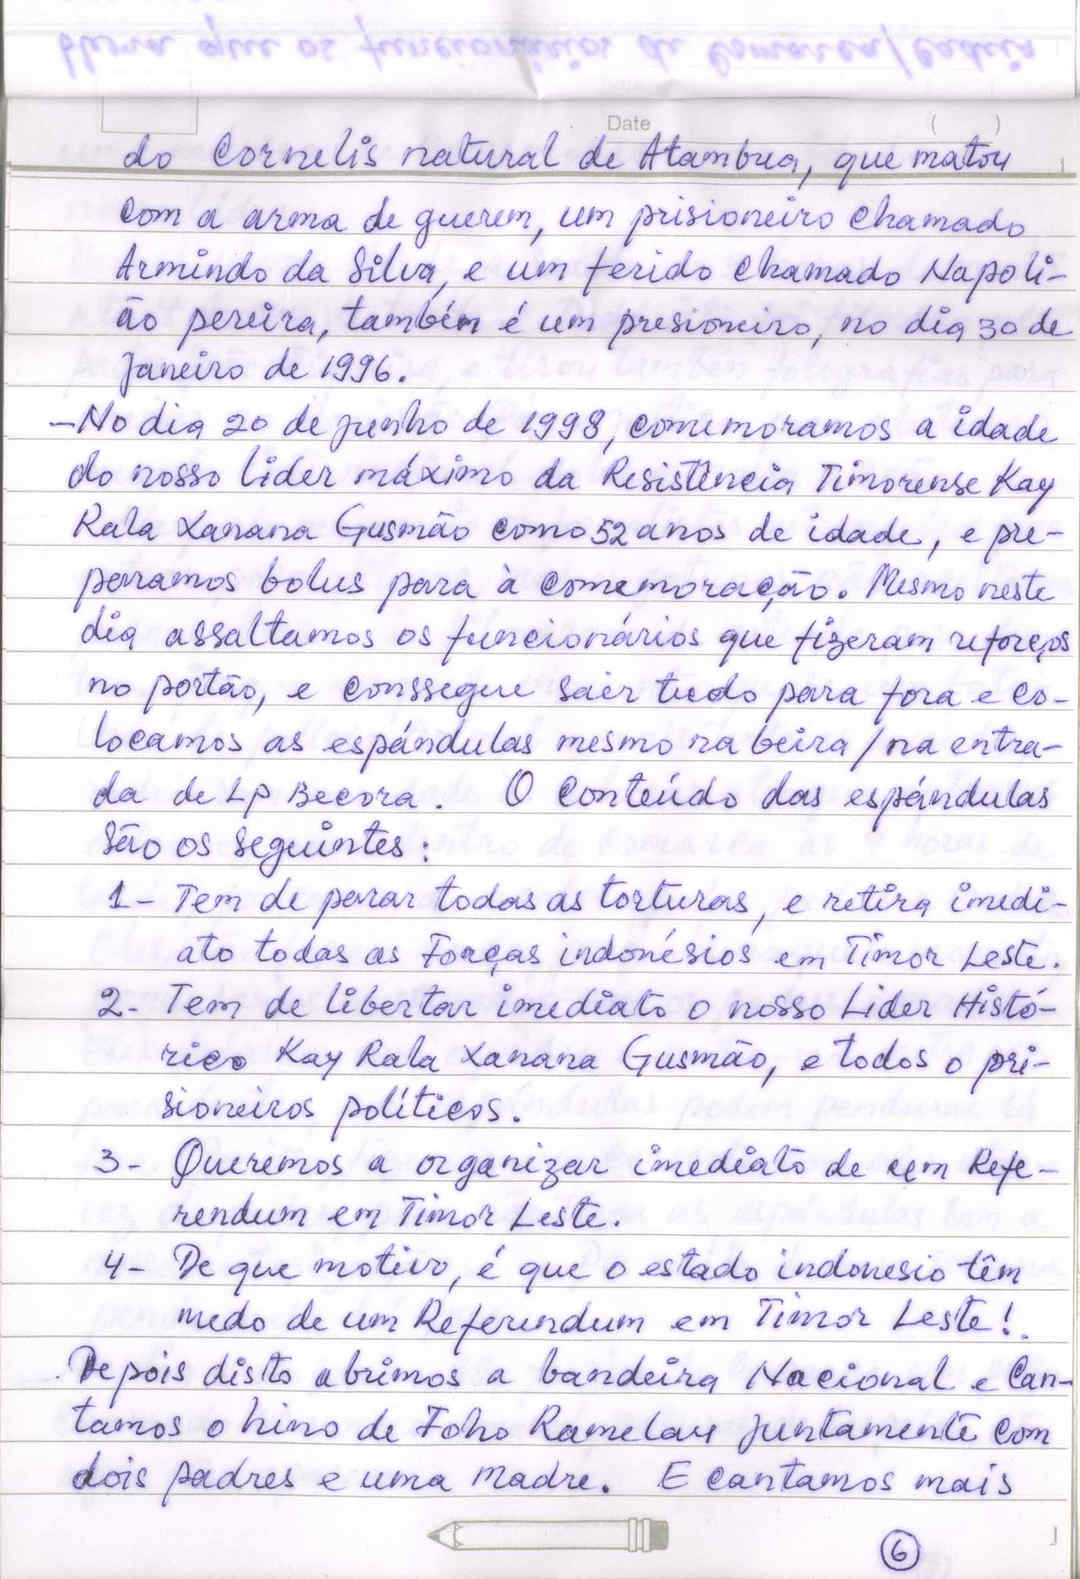 Date ( )
do Cornelis natural de Atambua, que matou
com a arma de guerem, um prisioneiro chamado
Armindo da Silva, e um ferido chamado Napoli-
ão pereira, também é um presioneiro, no dia 30 de
Janeiro de 1996.
- No dia 20 de junho de 1998, comemoramos a idade
do nosso lider máximo da Resistência Timorense Kay
Rala Xanana Gusmão como 52 anos de idade, e pre-
parramos bolus para à comemoração. Mesmo neste
dia assaltamos os funcionários que fizeram reforços
no portão, e conssegue sair tudo para fora e co-
locamos as espándulas mesmo na beira / na entra-
da de LP Becora. O conteúdo das espándulas
são os seguintes:
1- Tem de parar todas as torturas, e retira imedi-
ato todas as Forças indonésios em Timor Leste.
2- Tem de libertar imediato o nosso Lider Histó-
rico Kay Rala Xanana Gusmão, e todos o pri-
sioneiros políticos.
3- Queremos a organizar imediato de um Refe-
rendum em Timor Leste.
4- De que motivo, é que o estado indonesio têm
medo de um Referendum em Timor Leste!.
Depois disto abrimos a bandeira Nacional e Can-
tamos o hino de Foho Ramelau juntamente com
dois padres e uma madre. E cantamos mais
6